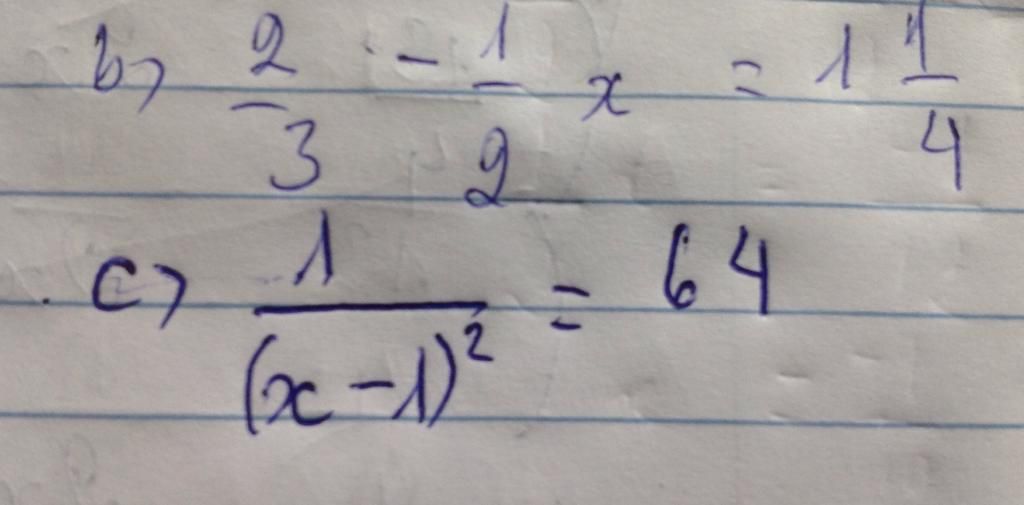 b) 2/3 - 1/2 x = 1 1/4
c) 1/(x-1)² = 64